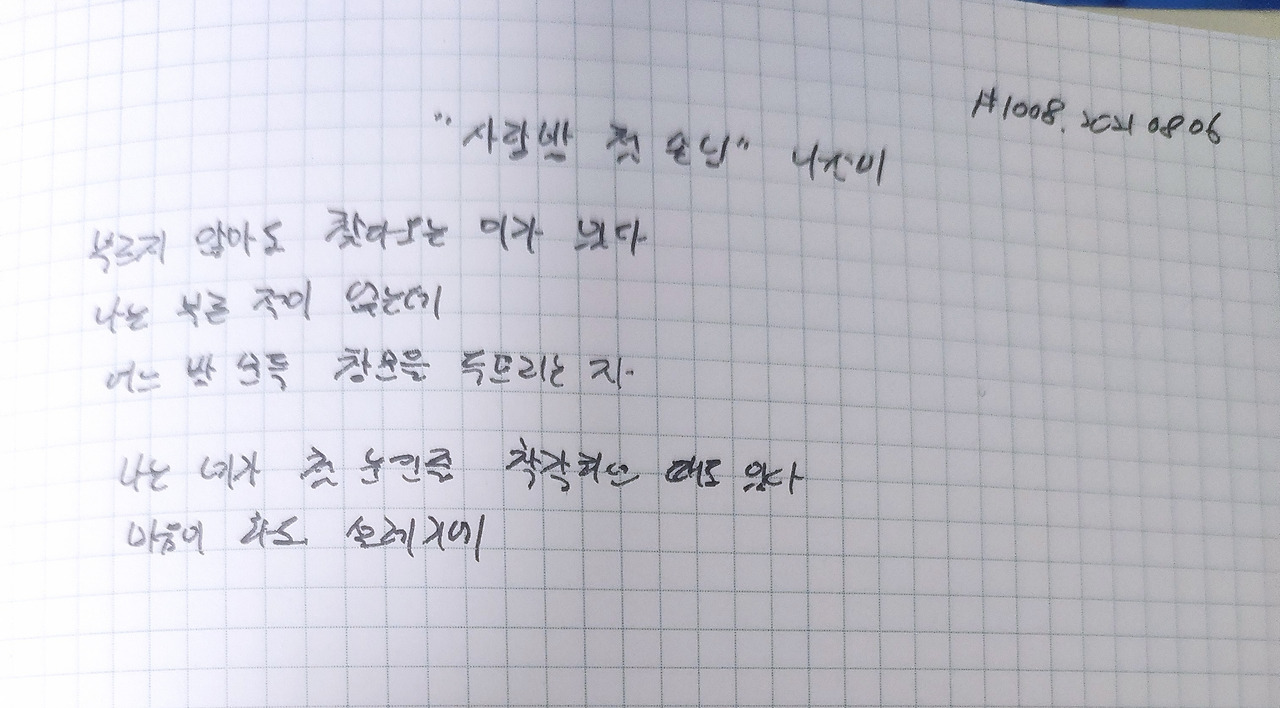 #1008. 2021 08 06
"사랑방 첫 손님" 나선미
부르지 않아도 찾아오는 이가 있다
나는 부른 적이 없는데
어느 밤 문득 창문을 두드리는 지.
나는 네가 첫 눈인줄 착각하던 때도 있다
마음이 하도 설레기에